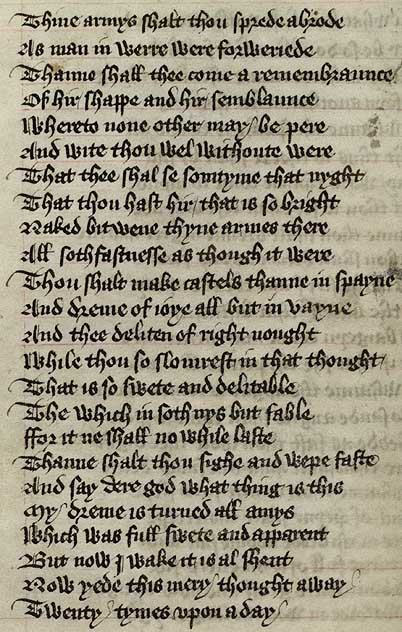 Thine armys shalt thou sprede abrode
As man in werre were forweriede
Thanne shall thee come a remembraunce
Of hir shappe and hir semblaunce
Whereto none other may be pere
And wite thou wel withoute were
That thee shal se somtyme that nyght
That thou hast hir / that is so bright
Naked bitwene thyne armes there
All sothfastnesse as though it were
Thou shalt make castels thanne in spayne
And dreme of ioye all but in vayne
And thee deliten of right nought
While thou so slomrest in that thought /
That is so swete and delitable
The which in soth nys but fable
ffor it ne shall no while laste
Thanne shalt thou sighe and wepe faste
And say dere god what thing is this
My / dreme is turned all amys
Which was full swete and apparent
But now I wake it is al shent
Now yede this mery / thought away /
Twenty / tymes vpon a day /